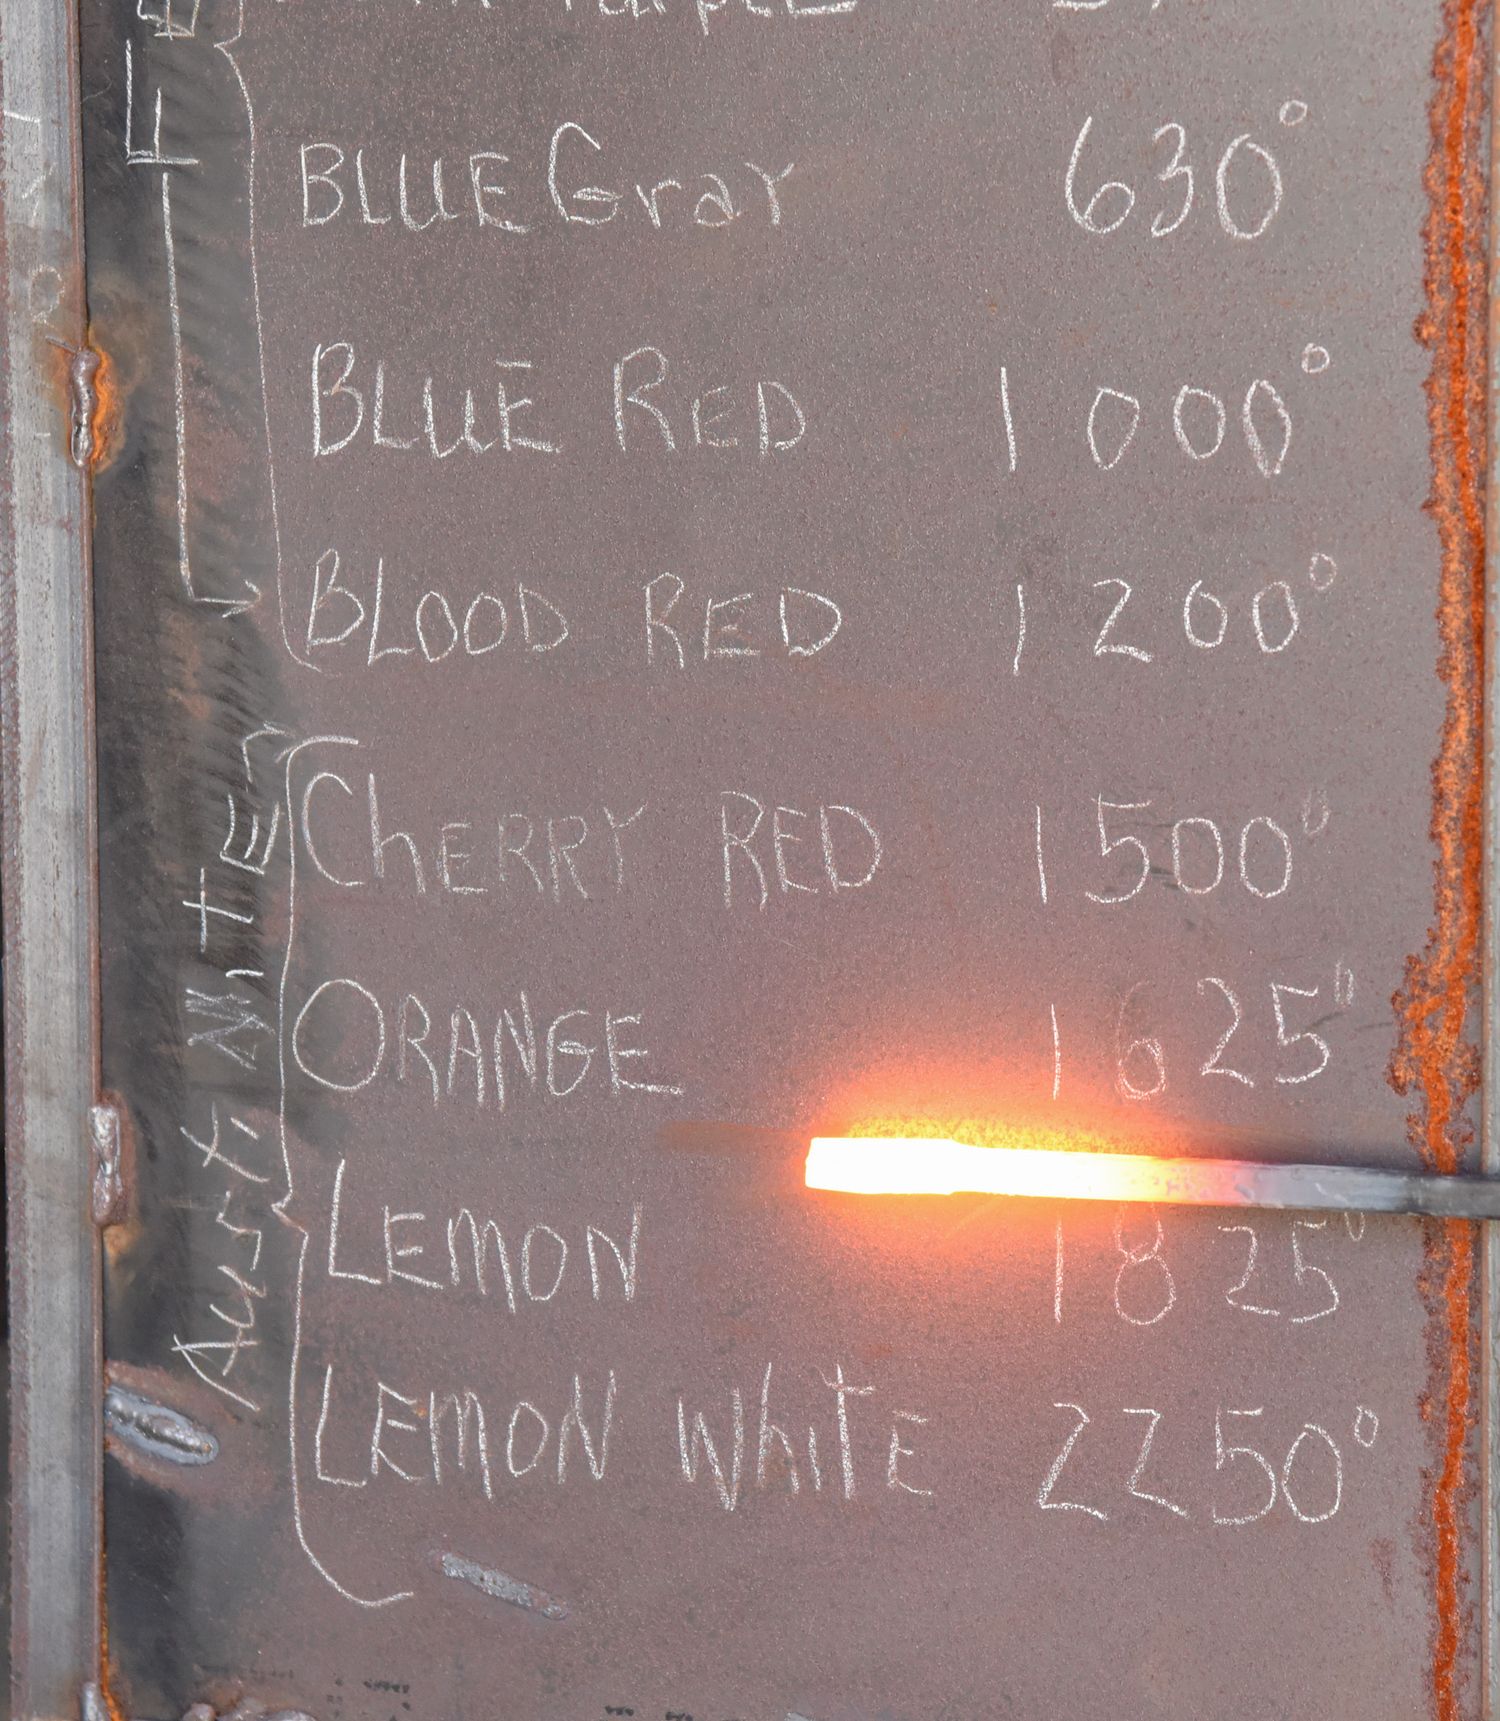 Purple
BLUE Gray 630°
BLUE RED 1000°
BLOOD RED 1200°
CHERRY RED 1500°
ORANGE 1625°
LEMON 1825°
LEMON WHITE 2250°
AustiNiTE